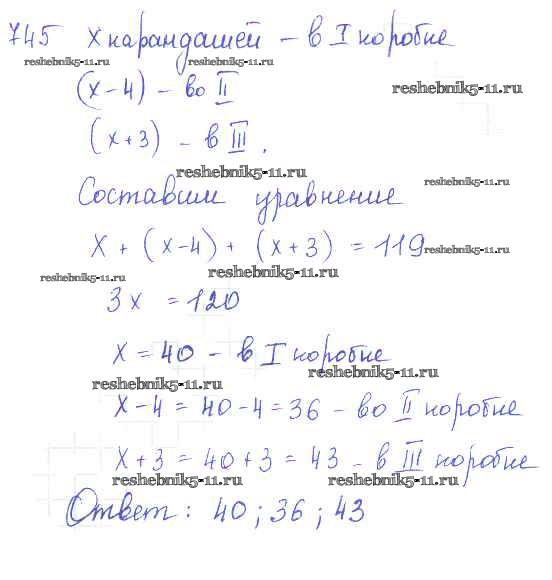 745 X карандашей - в I коробке
reshebnik5-11.ru reshebnik5-11.ru
(x-4) - во II reshebnik5-11.ru
(x+3) - в III.
reshebnik5-11.ru
Составим уравнение reshebnik5-11.ru
X + (x-4) + (x+3) = 119 reshebnik5-11.ru
reshebnik5-11.ru reshebnik5-11.ru
3x = 120
X = 40 - в I коробке
reshebnik5-11.ru reshebnik5-11.ru
X-4 = 40-4 = 36 - во II коробке
X+3 = 40+3 = 43 - в III коробке
reshebnik5-11.ru reshebnik5-11.ru
Ответ: 40; 36; 43